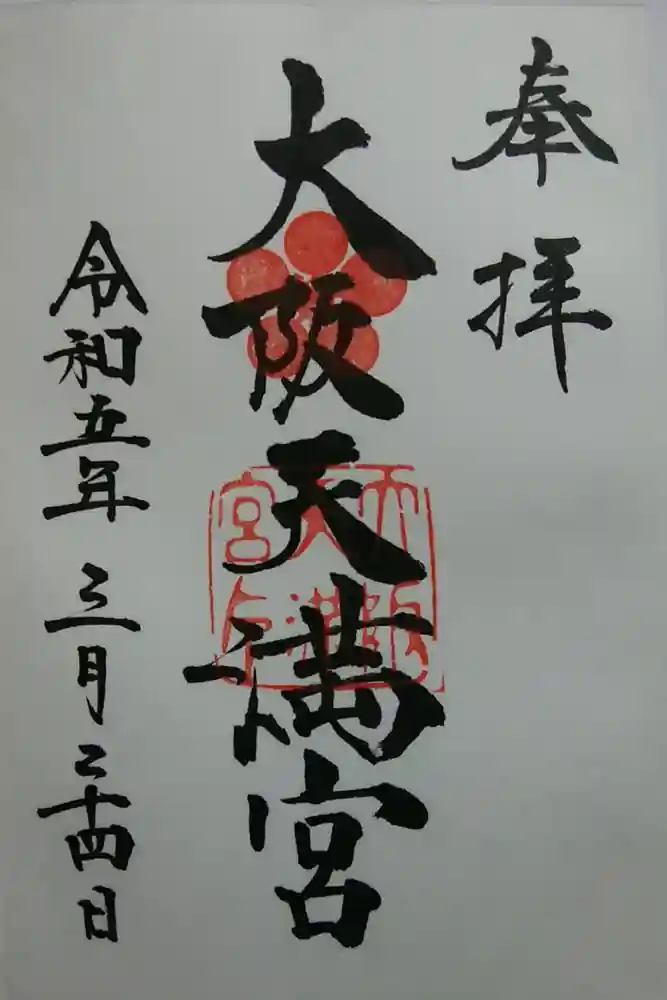 奉拝
大阪天満宮
令和五年三月二十四日